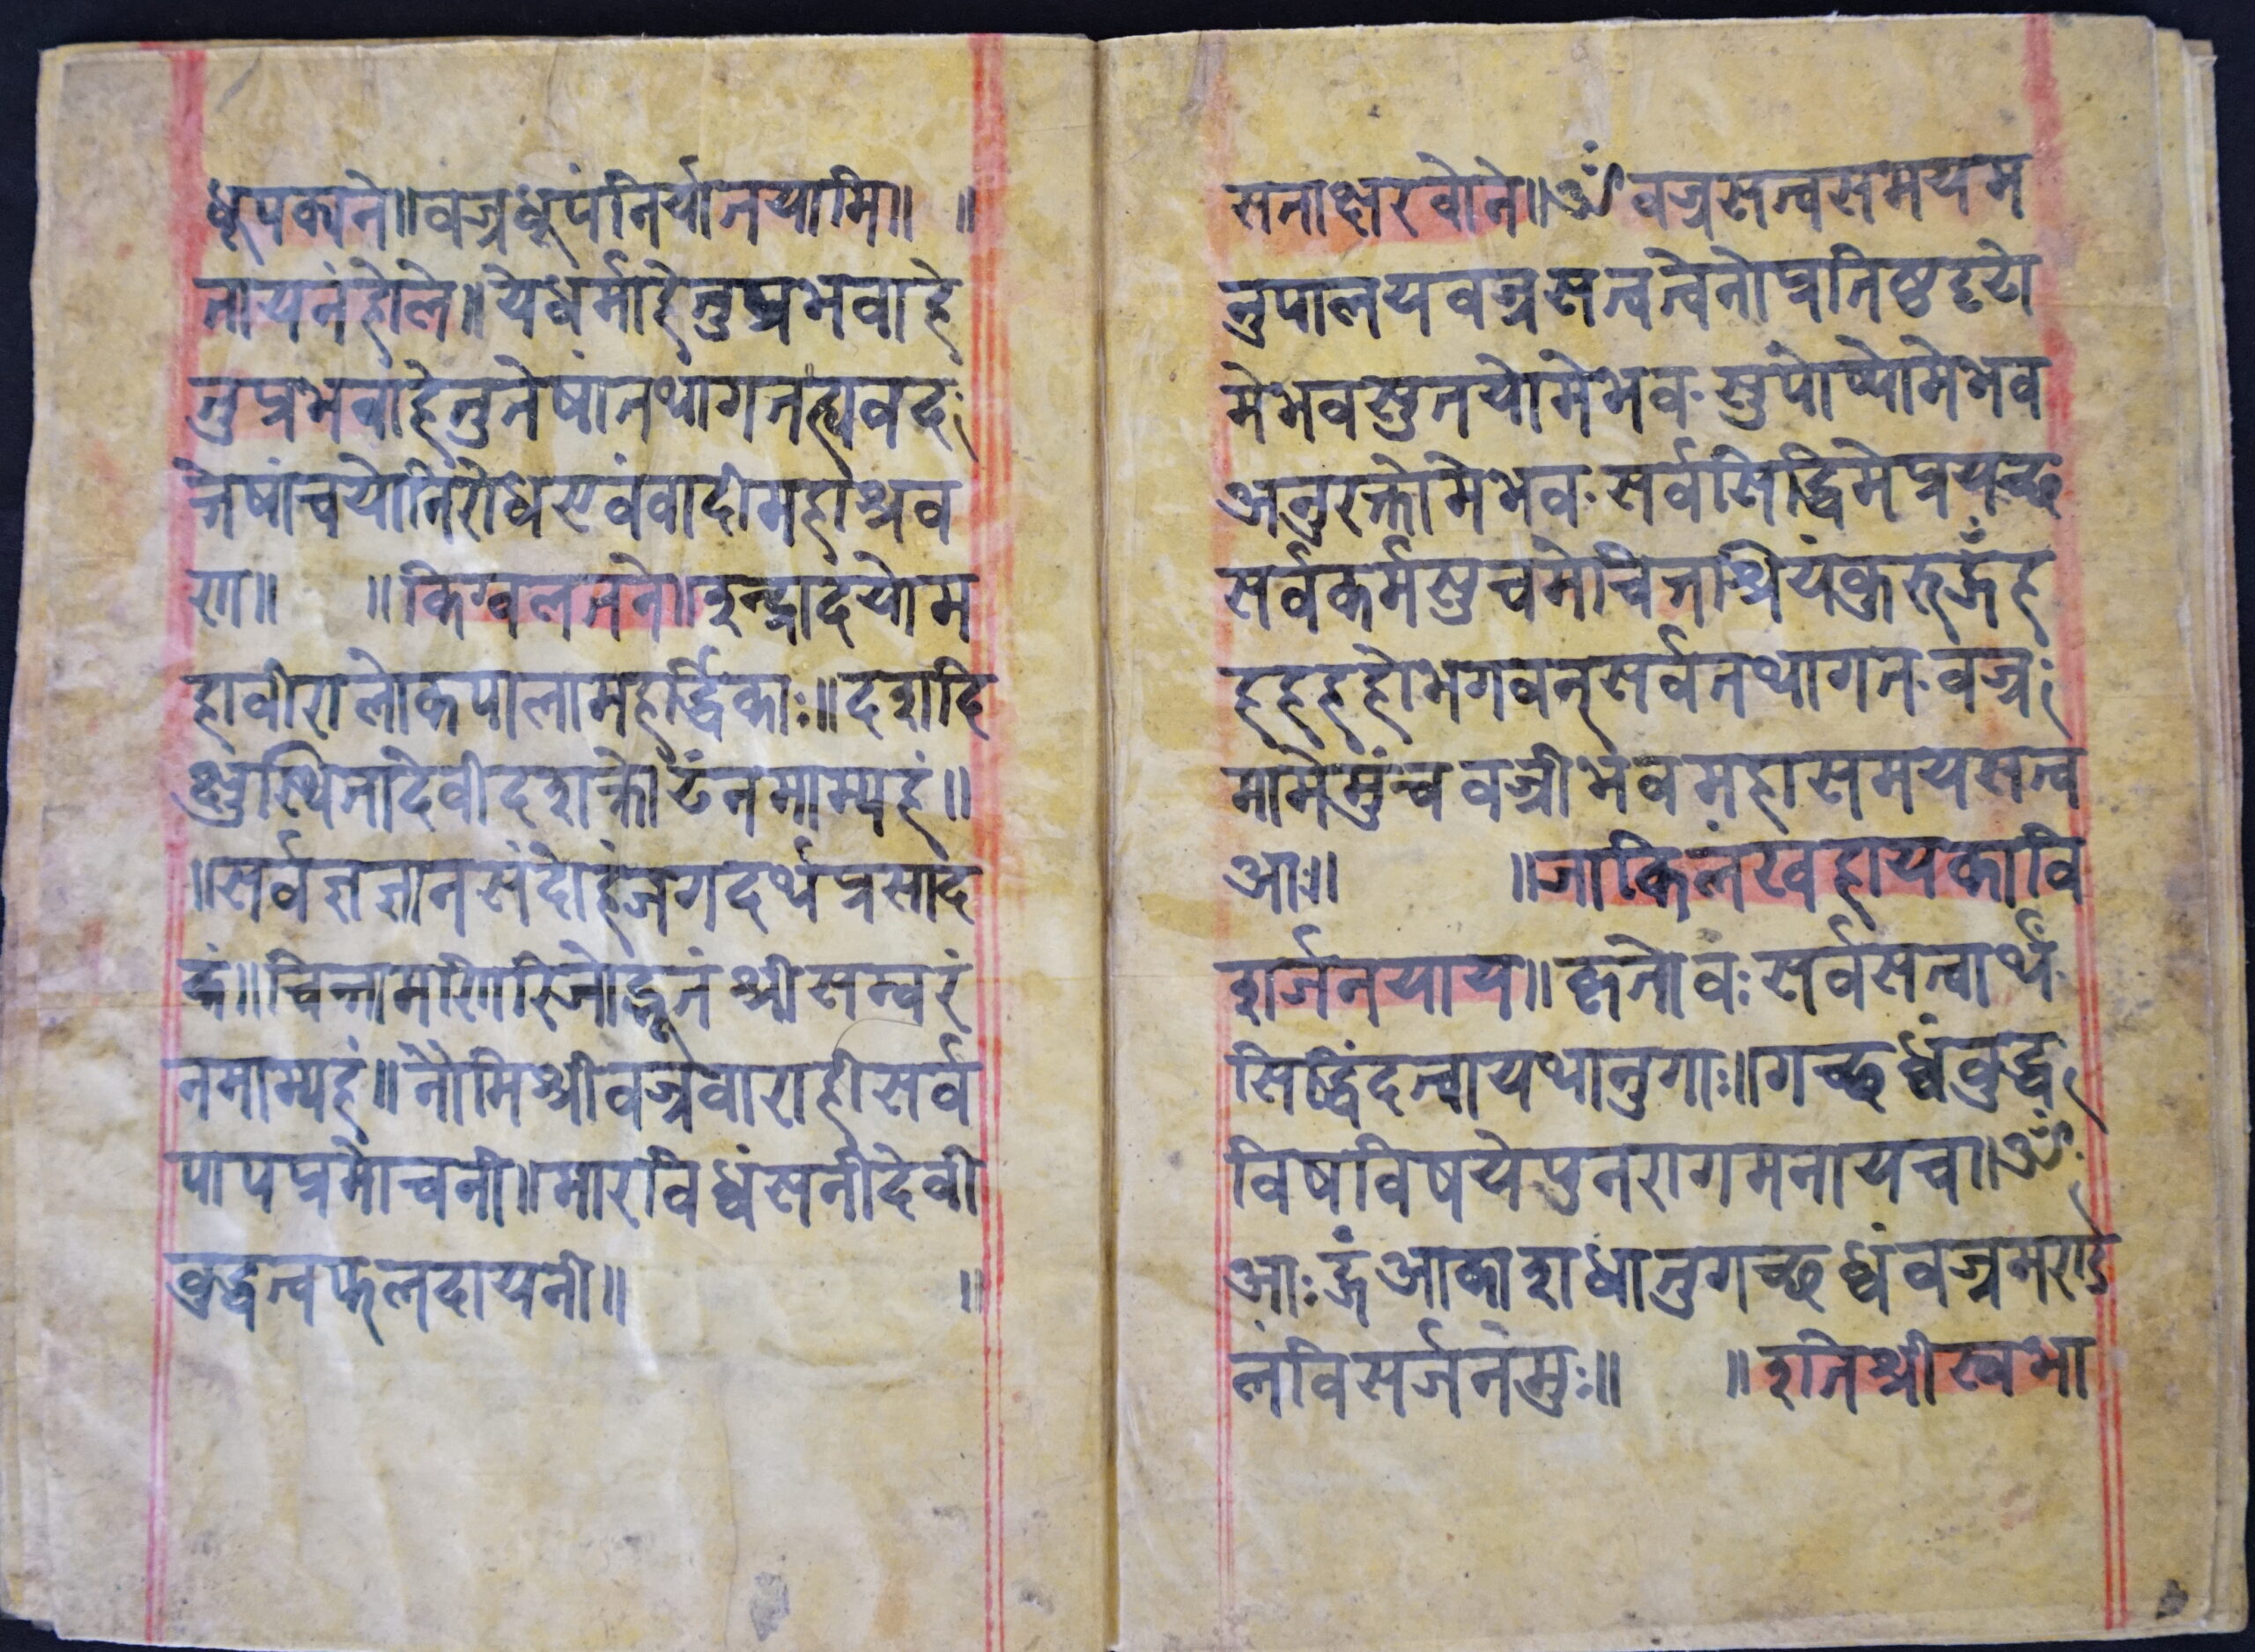 धूपकाने॥वज्रधूपंनिर्यातयामि॥ ॥
तायनंहोले॥येधर्माहेतुप्रभवाहे
तुप्रभवाहेतुतेषांतथागतह्यवद
त्तेषांचयोनिरोधएवंवादीमहाश्रव
ण॥ ॥किग्वलतने॥इन्द्रादयोम
हावीरालोकपालामहर्द्धिकाः॥दशदि
क्षुस्थितादेवीदशक्रोटंनमाम्यहं॥
॥सर्वज्ञज्ञानसंदोहंजगदर्थप्रसाद
कं॥चिन्तामणिरिजोद्भूतंश्रीसम्वरं
नमाम्यहं॥नौमिश्रीवज्रवाराहीसर्व
पापप्रमोचनी॥मारविध्वंसनीदेवी
बुद्धत्वफलदायनी॥ ॥
सताक्षरवोने॥ॐवज्रसत्वसमयम
नुपालयवज्रसत्वत्वेनोप्रतिष्ठदृढो
मेभवसुतयोमेभव॰सुपोष्योमेभव
अनुरक्तोमेभव॰सर्वसिद्धिमेप्रयच्छ
सर्वकर्मसुचमेचित्तश्रियंकुरुहूँह
हहहहोभगवन्सर्वतथागत॰वज्र
मामेमुंचवज्रीभवमहासमयसत्व
आः॥ ॥जाकिलंखहायकावि
शर्जनयाय॥कृतोवःसर्वसत्वार्थ
सिद्धिंदत्वायथानुगाः॥गच्छध्वंबुद्ध
विषविषयेपुनरागमनायच॥ॐ
आःहूँआकाशधातुगच्छध्वंवज्रमण्ड
लंविसर्जनंमुः॥ ॥इतिश्रीस्वभा